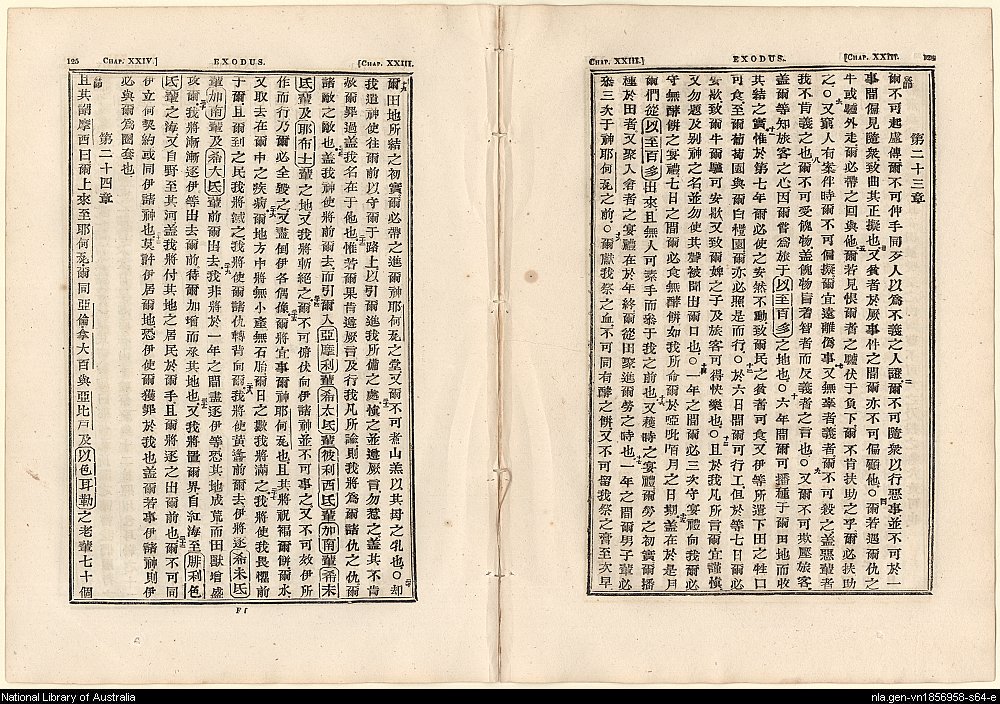 CHAP. XXIII.] EXODUS. [CHAP. XXIII.
第二十三章
爾不可起虛傳爾不可伸手同歹人以為不義之人證爾不可隨眾以行惡事並不可於一
事間偏見隨眾致曲其正擬也又貧者於厥事件之間爾亦不可偏顧他○爾若遇爾仇之
牛或驢外走爾必帶之回與他爾若見恨爾者之驢伏于負下爾不肯扶助之乎爾必扶助
之○又窮人有案件時爾不可偏擬爾宜遠離偽事又無辜者義者爾不可殺之蓋惡輩者
我不肯義之也爾不可受餽物蓋餽物盲著智者而反義者之言也○又爾不可欺壓旅客
蓋爾等知旅客之心因爾嘗為旅于以至百多之地也○六年間爾可播種于爾田地而收
其結之實惟於第七年爾必使之安然不動致爾民之貧者可食又伊等所遺下田之牲口
可食至爾葡萄園與爾白欖園爾亦必照是而行○於六日間爾可行工但於等七日爾必
安歇致爾牛爾驢可安歇又致爾婢之子及旅客可得快樂也○且於我凡所言爾宜謹慎
又勿題及别神之名並勿使其聲被聞出爾口也○一年之間爾必三次守宴禮向我爾必
守無酵餅之宴禮七日之間爾必食無酵餅如我所命爾於啞吡陌月之日期蓋在於是月
爾們從以至百多出來且無人可素手而叅于我之前也又穫時之宴禮爾勞之初實爾播
種於田者又聚入會者之宴禮在於年終爾從田聚進爾勞之時也一年之間爾男子輩必
叅三次于神耶何瓦之前○爾獻我祭之血不可同有酵之餅又不可留我祭之膏至次早
125 CHAP. XXIV.] EXODUS. [CHAP. XXIII.
爾田地所結之初實爾必帶之進爾神耶何瓦之堂又爾不可煮山羔以其母之乳也○却
我遣神使往爾前以守爾于路上以引爾進我所備之處慎之並遜厥言勿惹之蓋其不肯
赦爾罪過蓋我名在于他也惟若爾果肯遜厥言及行我凡所諭則我將為爾諸仇之仇爾
諸敵之敵也蓋我神使將前爾去而引爾入亞摩利輩希太氏輩彼利西氏輩加南輩希未
氏輩及耶布士輩之地又我將斬絕之爾不可俯伏向伊諸神並不可事之又不可效伊所
作而行乃爾必全毀之又盡倒伊各偶像爾將宜事爾神耶何瓦也且其將祝福爾餅爾水
又取去在爾中之疾病爾地方中將無小產無石胎爾日之數我將滿之我將使我畏懼前
于爾且爾到之民我將滅之我將使爾諸仇轉背向爾我將使黃蜂前爾去伊將逐希未氏
輩加南輩及希太氏輩前爾出去我非將於一年之間盡逐伊等恐其地成荒而田獸增盛
攻爾我將漸漸逐伊等出去爾前待爾加增而承其地也又我將置爾界自紅海至腓利色
氏輩之海又自野至其河蓋我將付其地之居民於爾手且爾將逐之出爾前也爾不可同
伊立何契約或同伊諸神也莫許伊居爾地恐伊使爾獲罪於我也蓋爾若事伊諸神則伊
必與爾為圈套也
第二十四章
且其謂摩西曰爾上來至耶何瓦爾同亞倫拿大百與亞比戶及以色耳勒之老輩七十個
F f
National Library of Australia
nla.gen-vn1856958-s64-e